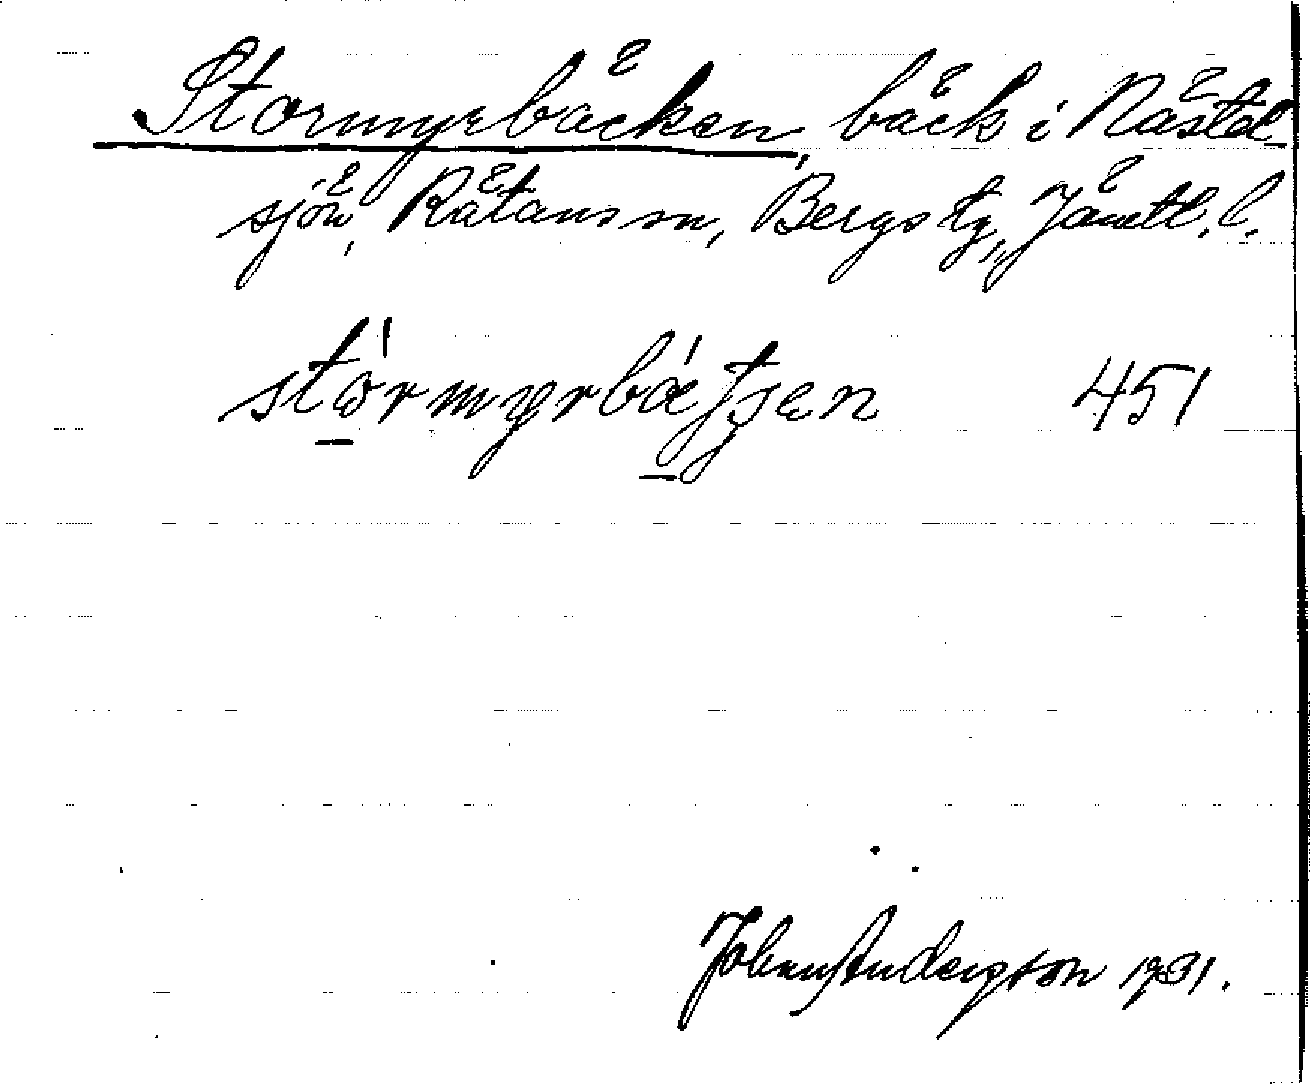 Stormyrbäcken, bäck i Nästel-
sjön, Rätans sn, Bergs tg, Jämtl. l.
stórmyrbáʈʂen 451
Johan Anderzson 1931.